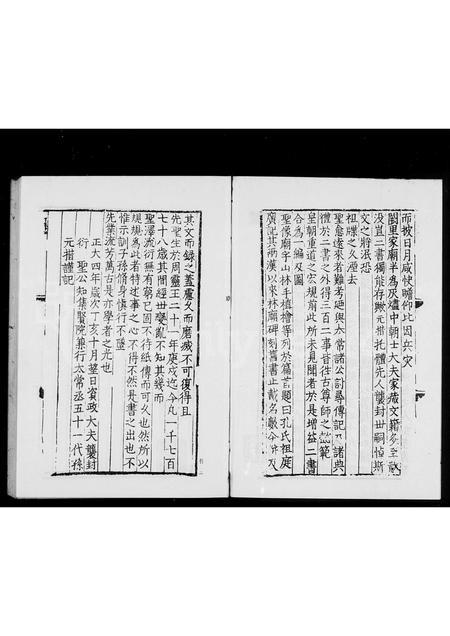 而披日月咸快瞻仰比因兵災
闕里家廟半為灰燼中朝士大夫家藏文籍多至散
没豈二書獨能存歟元措托體先人襲封世嗣悼斯
文之將泯恐
祖牒之久湮去
聖愈遠來者難考迺與太常諸公討尋傳記及諸典
禮於二書之外得三百二事皆往古尊師之懿範
皇朝重道之宏規前此所未見聞者於是增益二書
合為一編及圖
聖像廟宇山林手植檜等列於篇首題曰孔氏祖庭
廣記其兩漢以來林廟碑刻舊書止載名數今併及
其文而録之蓋慮久而磨滅不可復得且
先聖生於周靈王二十一年庚戌迄今凡一千七百
七十八歲其間經世變亂不知其幾而
聖澤流衍無有窮已固不待紙傳而可久也然所以
規規為此者特述事之心不得不然是書之出也不
惟示訓子孫脩身慎行不墜
先業流芳萬古是亦學者之光也
正大四年歲次丁亥十月望日資政大夫襲封
衍聖公知集賢院兼行太常丞五十一代孫
元措謹記